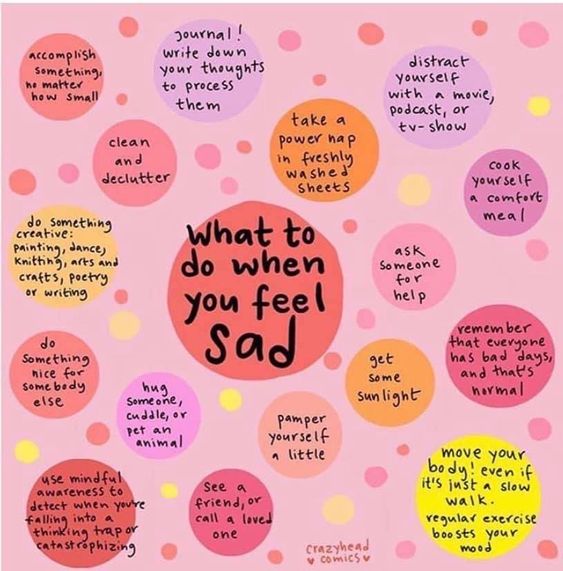 accomplish
something,
no matter
how small
Journal!
write down
your thoughts
to process
them
distract
yourself
with a movie,
podcast, or
tv-show
clean
and
declutter
take a
power nap
in freshly
washed
sheets
cook
yourself
a comfort
meal
do something
creative:
painting, dance,
knitting, arts and
crafts, poetry
or writing
what to
do when
you feel
sad
ask
someone
for
help
do
something
nice for
somebody
else
hug
someone,
cuddle, or
pet an
animal
get
some
sunlight
remember
that everyone
has bad days,
and that's
normal
pamper
yourself
a little
use mindful
awareness to
detect when you're
falling into a
thinking trap or
catastrophizing
see a
friend, or
call a loved
one
move your
body! even if
it's just a slow
walk.
regular exercise
boosts your
mood
crazyhead
♥ comics ♥